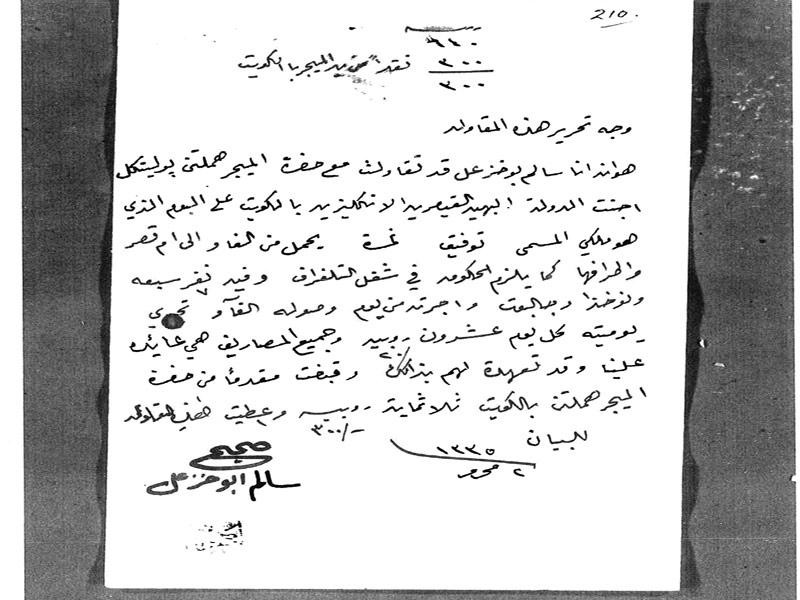 210.
روبيه
٦٤٠
٣٠٠ نقداً من يد الميجر بالكويت
٣٠٠
وجه تحرير هذه المقاوله
هو اننا انا سالم بوخزعل قد تقاولت مع حضرة الميجر هملتن پوليتكل
اجنت الدولة البهيه القيصريه الانكليزيه بالكويت على البوم الذي
هو ملكي المسمى توفيق يحمل من الفاو الى ام قصر
واطرافها كما يلزم الحكومه في شغل التلغراف وفيه نفر سبعه
ونوخذا واجرته من يوم وصوله الفاو تجري
يوميته كل يوم عشرون روبيه وجميع المصاريف هي عايده
٢٠
علينا وقد تعهدة لهم بذالك وقبضت مقدماً من حضرة
الميجر هملتن بالكويت ثلاثماية روبيه واعطيت هذه المقاوله
٣٠٠/-
للبيان
١٣٣٥
٢ محرم
صحيح
سالم ابو خزعل